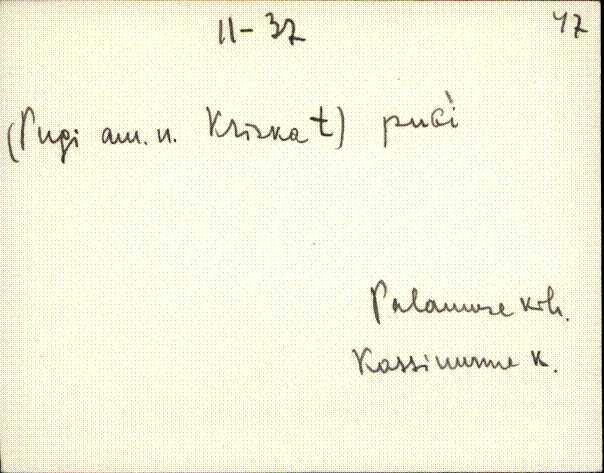 II-37 47
(Pugi am. n. Kriska t) puGì
Palamuse khk.
Kassinurme k.